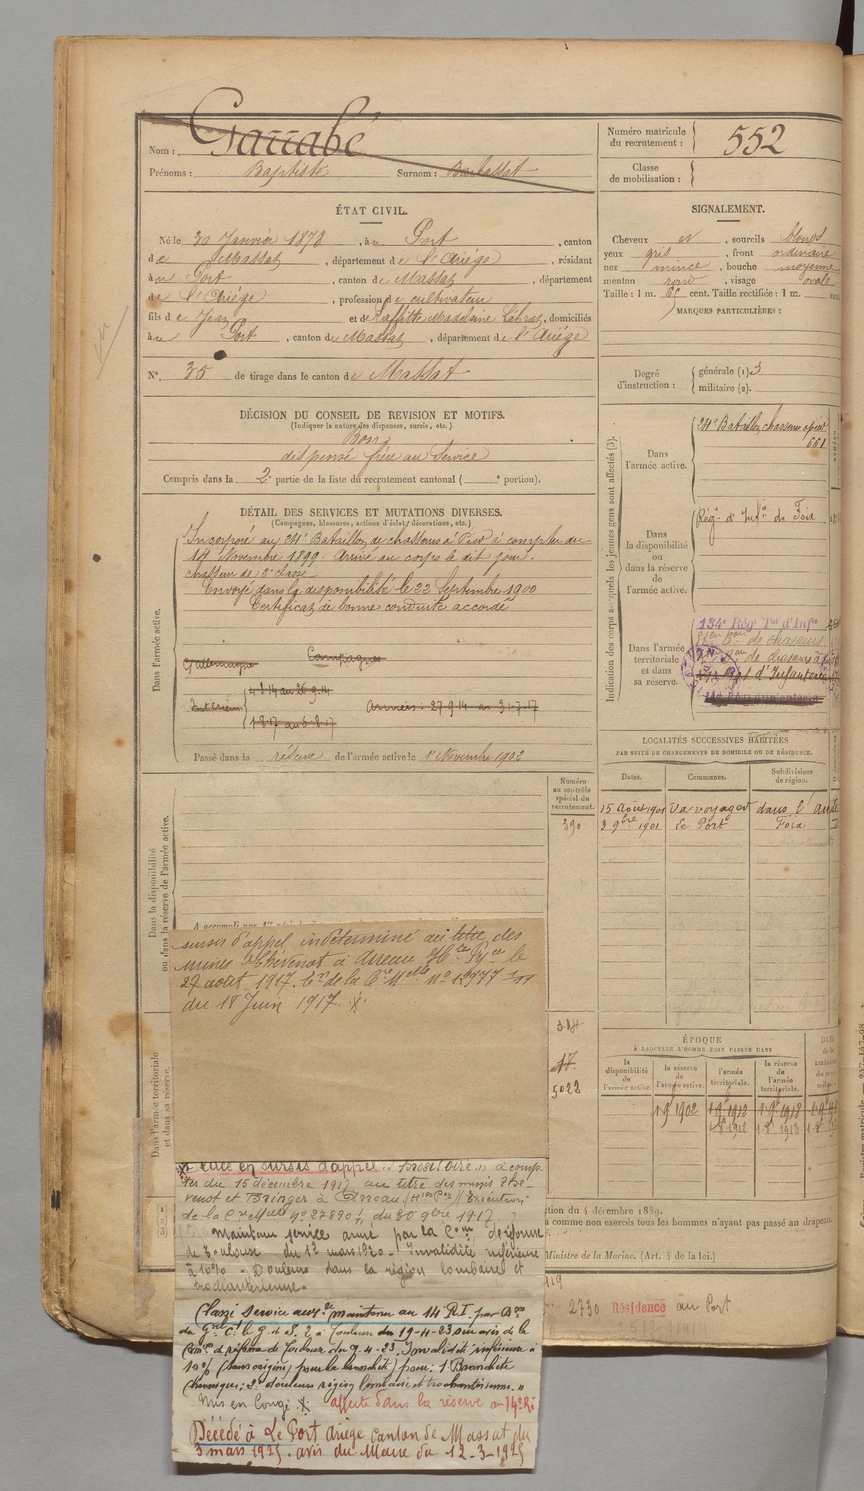 Nom : Garrabé
Prénoms : Baptiste Surnom : Barbassat
Numéro matricule du recrutement : 552
Classe de mobilisation :
ÉTAT CIVIL.
Né le 30 Janvier 1878, à u Port, canton
d e Massat, département de l'Ariége, résidant
à u Port, canton de Massat, département
de l'Ariége, profession de cultivateur
fils de Jean et de Laffitte Madelaine, domiciliés
à u Port, canton de Massat, département de l'Ariége
N° 35 de tirage dans le canton de Massat
SIGNALEMENT.
Cheveux et, sourcils blonds
yeux gris, front ordinaire
nez mince, bouche moyenne
menton rond, visage ovale
Taille : 1 m. cent. Taille rectifiée : 1 m. cent.
MARQUES PARTICULIÈRES :
Degré d'instruction : générale (1) 3
militaire (2).
DÉCISION DU CONSEIL DE REVISION ET MOTIFS.
(Indiquer la nature des dispenses, sursis, etc.)
Bon
dispensé frère au service
Compris dans la 2e partie de la liste du recrutement cantonal ( e portion).
DÉTAIL DES SERVICES ET MUTATIONS DIVERSES.
(Campagnes, blessures, actions d'éclat, décorations, etc.)
Dans l'armée active.
Incorporé au 24e Bataillon de chasseurs à Pied à compter du
14 Novembre 1899. Arrivé au corps le dit jour.
chasseur de 2e classe
Envoyé dans la disponibilité le 22 Septembre 1900
Certificat de bonne conduite accordé
Campagnes
C/ Allemagne
Intérieur 4-8-14 au 26-9-14
1-8-17 au 6-8-17
Armées : 27-9-14 au 31-7-17
Passé dans la réserve de l'armée active le 1er Novembre 1902
Indication des corps auxquels les jeunes gens sont affectés (3).
Dans l'armée active.
24e Bataillon chasseurs à pied
661
Dans la disponibilité ou dans la réserve de l'armée active.
Régt d'Infie de Foix
Dans l'armée territoriale et dans sa réserve.
134e Régt Tal d'Infie
d'Infanterie
LOCALITÉS SUCCESSIVES HABITÉES
PAR SUITE DE CHANGEMENTS DE DOMICILE OU DE RÉSIDENCE.
Dates. Communes. Subdivisions de région.
15 Août 1901 Va voyager dans l'Aude
3 9bre 1901 Le Port Foix
Numéro au contrôle spécial du recrutement.
390
5022
Dans la disponibilité ou dans la réserve de l'armée active.
Dans l'armée territoriale et dans sa réserve.
sursis d'appel indéterminé au titre des
mines Thévenot à Arreau Htes Pyées le
27 août 1917. Con de la Cre Mlle No 12977
du 18 Juin 1917.
ÉPOQUE
À LAQUELLE L'HOMME DOIT PASSER DANS
la disponibilité de l'armée active. la réserve de l'armée active. l'armée territoriale. la réserve de l'armée territoriale.
1-9 1902
Placé en sursis d'appel à comp-
ter du 15 décembre 1917 au titre des mines Thé-
venot et Bringer à Arreau (Htes Pes) (Exécution
de la Cre Mlle No 27890 du 30 9bre 1917.
maintenu service armé par la Com de réforme
de Toulouse du 12 mars 1920. Invalidité inférieure
à 10% - Douleurs dans la région lombaire et
trochantérienne.
Classé service auxre maintenu au 14e R.I. par Don
du Gal Ct le G. de S. 2 à Toulouse du 19-4-23 sur avis de la
Comon de réforme de Toulouse du 9-4-23. Invalidité inférieure à
10% (sans origine pour la bronchite) pour : 1° Bronchite
chronique ; 2° douleurs région lombaire et trochantérienne. "
Mis en Congé affecté dans la réserve au 14e RI
Décédé à Le Port Ariège Canton de Massat du
3 mars 1925. avis du Maire du 12-3-1925
tion du 4 décembre 1889.
a comme non exercés tous les hommes n'ayant pas passé au drapeau.
Ministre de la Marine. (Art. 4 de la loi.)
2730 Résidence au Port